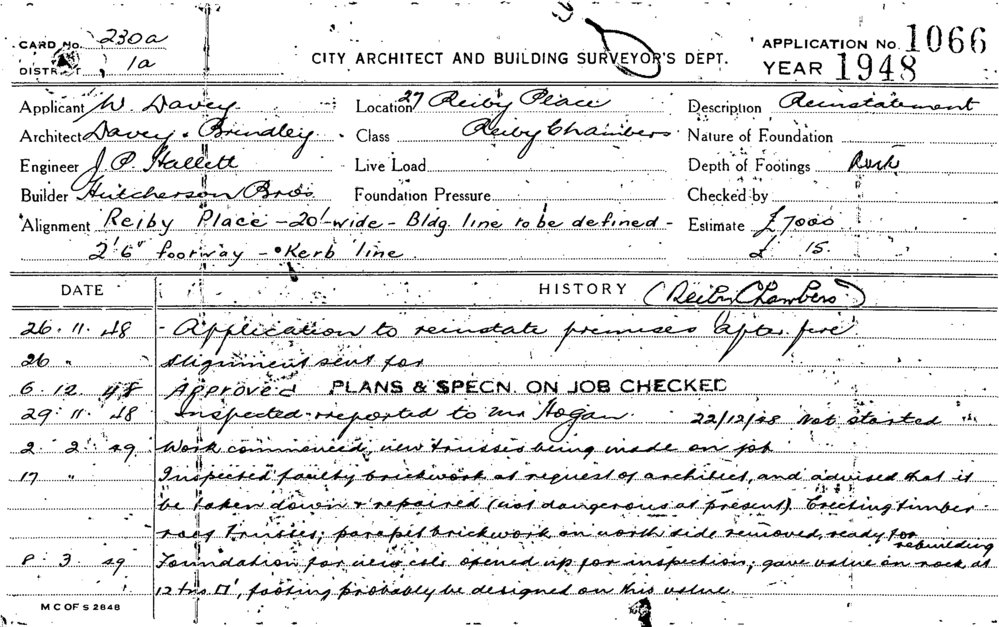 CARD No. 230a
DISTRICT 1a
CITY ARCHITECT AND BUILDING SURVEYOR'S DEPT.
APPLICATION No. 1066
YEAR 1948
Applicant W. Davey
Location 27 Reiby Place
Description Reinstatement
Architect Davey & Brindley
Class Reiby Chambers
Nature of Foundation
Engineer J. P. Hallett
Live Load
Depth of Footings Rock
Builder Hutcherson Bros
Foundation Pressure
Checked by
Alignment Reiby Place - 20' wide - Bldg. line to be defined -
Estimate £7000
2'6" footway - Kerb line
£ 15.
DATE
HISTORY (Reiby Chambers)
26. 11. 48 - Application to reinstate premises after fire
26 " Alignment sent for
6. 12. 48 Approved PLANS & SPECN. ON JOB CHECKED
29. 11. 48 Inspected & reported to Mr Hogan. 22/12/48 Not started
2. 2. 49 Work commenced, new trusses being made on job
17 " Inspected faulty brickwork at request of architect, and advised that it
be taken down & repaired (not dangerous at present). Erecting timber
roof trusses; parapet brickwork on north side removed, ready for
rebuilding
8. 3. 49 Foundation for new cols. opened up for inspection; gave value on rock at
12 tns □', footing probably be designed on this value.
M C OF S 2848